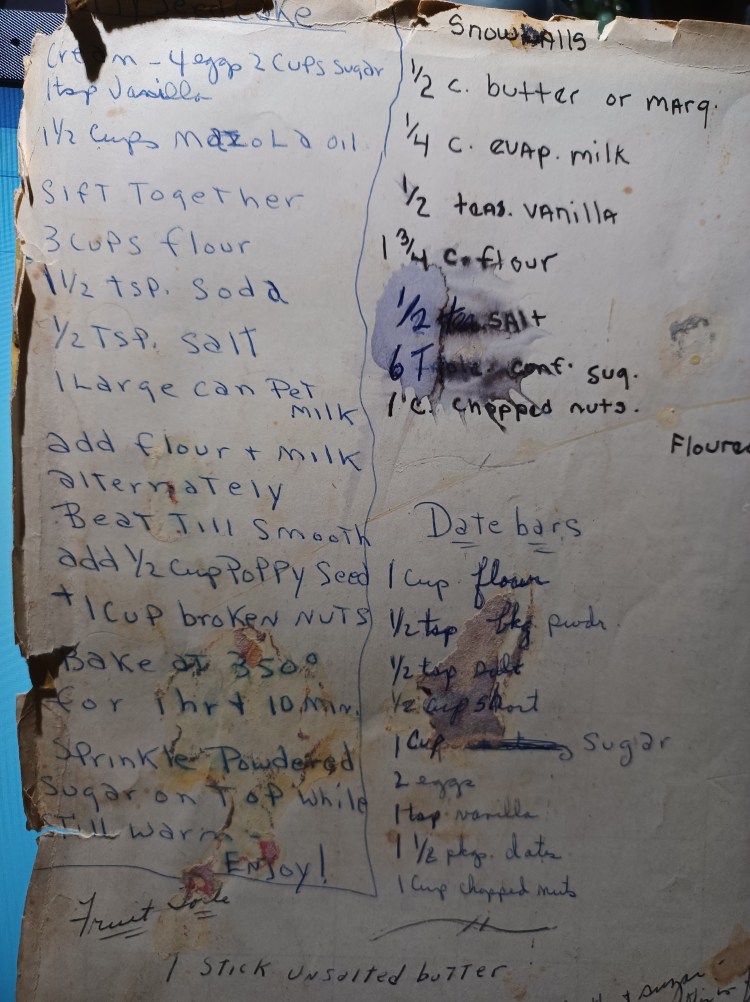 Cream - 4 eggs 2 Cups Sugar
1 tsp Vanilla
1 1/2 Cups Mazola oil
Sift Together
3 cups flour
1 1/2 tsp. Soda
1/2 Tsp. Salt
1 Large can Pet
Milk
add flour + milk
alternately
Beat Till Smooth
add 1/2 Cup Poppy Seed
+ 1 Cup broken nuts
Bake at 350°
for 1 hr + 10 Min.
Sprinkle Powdered
Sugar on Top while
Still warm -
Enjoy!
Snowballs
1/2 c. butter or marg.
1/4 c. evap. milk
1/2 teas. vanilla
1 3/4 c. flour
1/2 salt
6 conf. sug.
1 c. chopped nuts.
Floured
Date bars
1 Cup flour
1/2 tsp bkg pwdr
1/2 tsp salt
1/2 cup short
1 Cup Sugar
2 eggs
1 tsp vanilla
1 1/2 pkgs. dates
1 Cup chopped nuts
Fruit
1 Stick unsalted butter
sugar